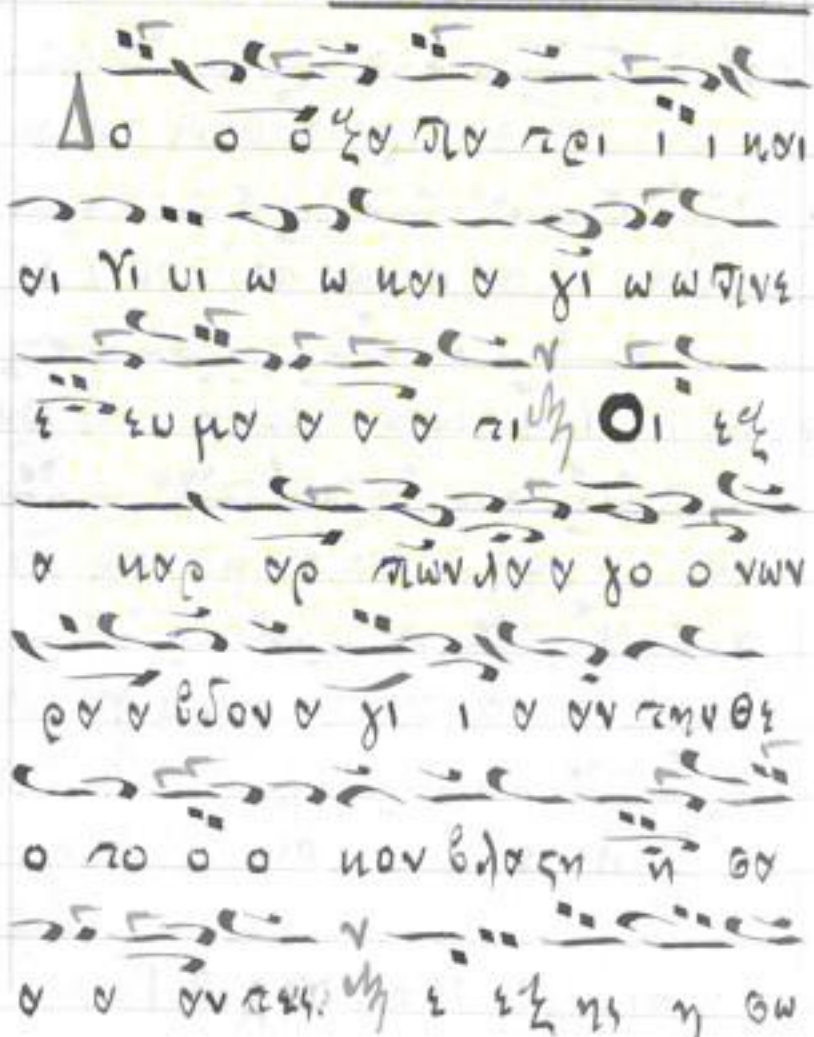 Δο ο ο ξα πα τρι ι ι και
αι γι υι ω ω και α γι ω ω πνε
ε ευ μα α α α τι Οι εξ
α καρ αρ πων λα α γο ο νων
ρα α βδον α γι ι α αν την θε
ο το ο ο κον βλαςη η σα
α α αν τες. ε εξ ης η σω